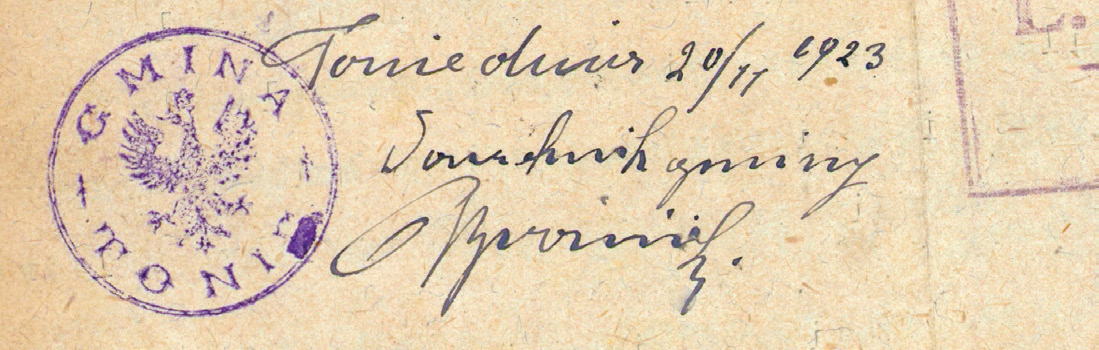 GMINA
TONIE
Tonie dnia 20/11 1923
gminy
L.